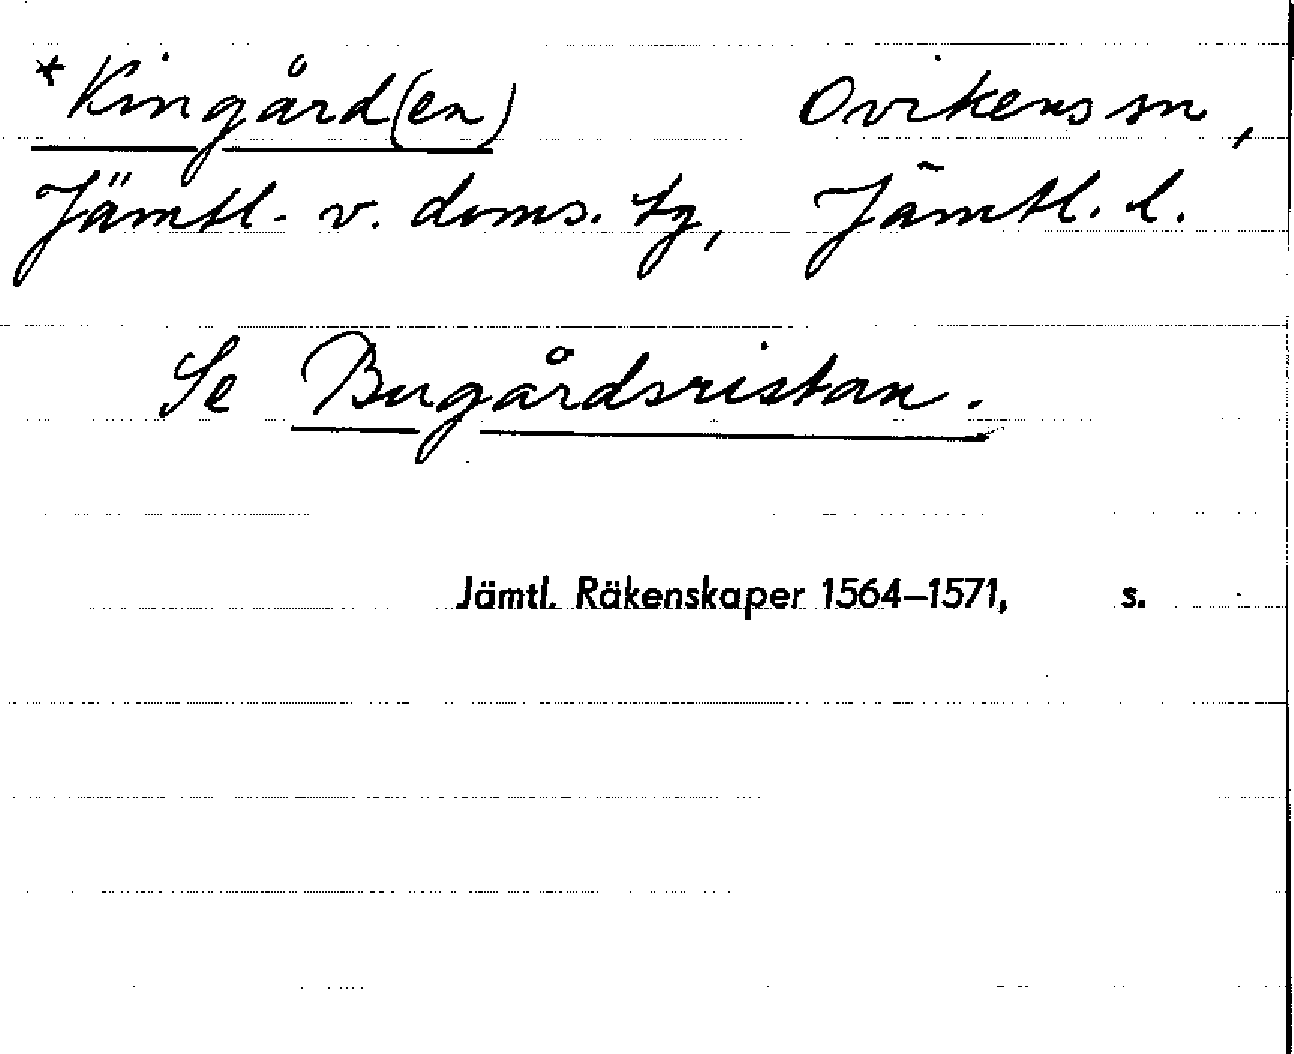 *Kingård(en) Ovikens sn,
Jämtl. v. doms. tg, Jämtl. l.
Se Bugårdsristan.
Jämtl. Räkenskaper 1564–1571, s.